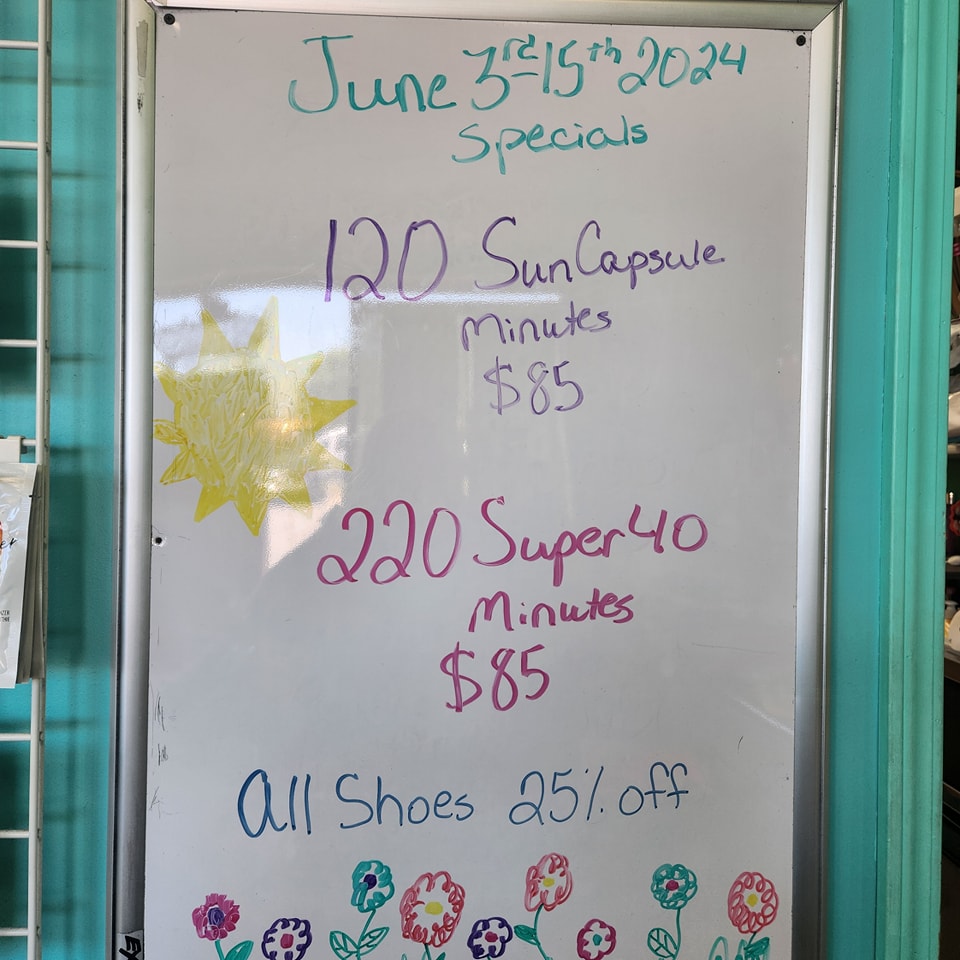 June 3rd-15th 2024
Specials
120 SunCapsule
Minutes
$85
220 Super 40
Minutes
$85
All Shoes 25% off